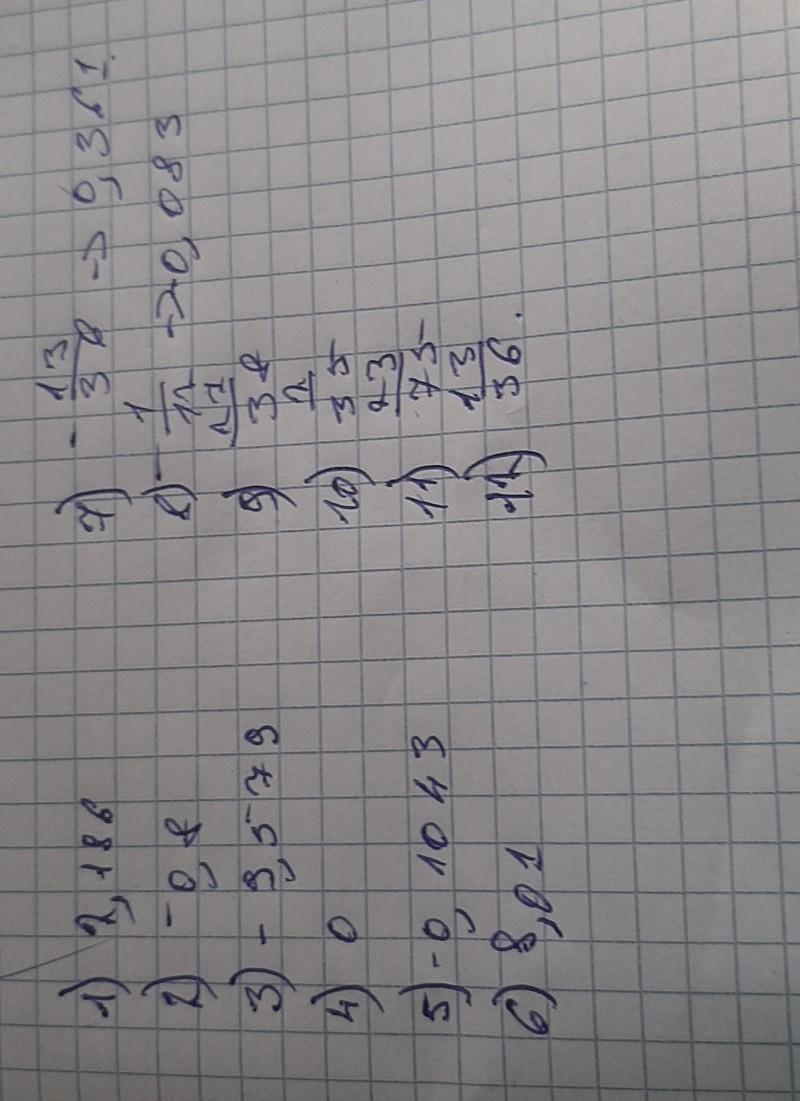 1) 2,186
2) -0,8
3) -9,579
4) 0
5) -0,1043
6) 8,01
7) - 13/36 -> 0,361.
8) - 1/12 -> 0,083
9) 11/38
10) 2/35
11) 23/75
12) 13/36.